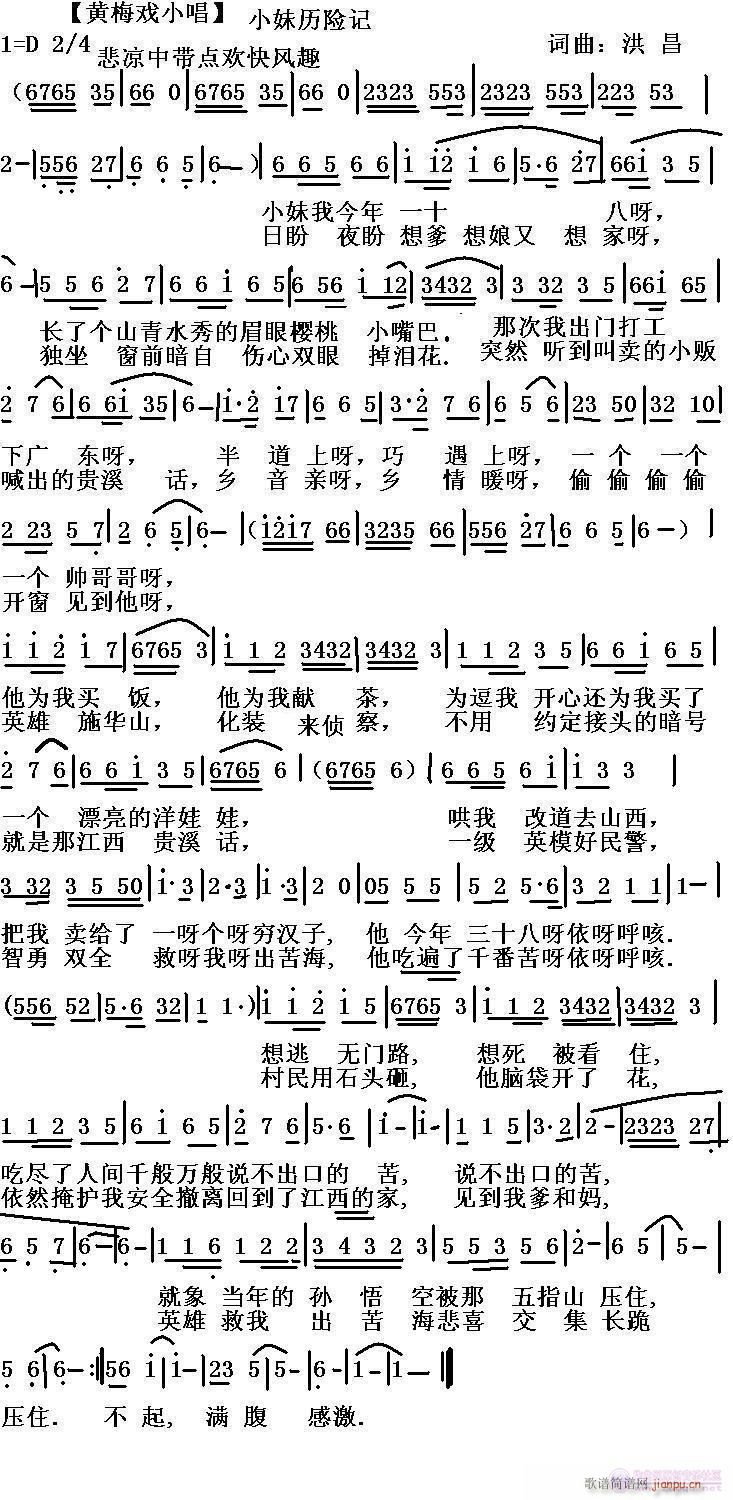 【黄梅戏小唱】 小妹历险记
1=D 2/4 词曲：洪 昌
悲凉中带点欢快风趣
（6765 35|66 0|6765 35|66 0|2323 553|2323 553|223 53|
2-|556 27|6 6 5|6-）|6 6 5 6 6|i i2 i 6|5·6 27|66i 3 5|
小妹我今年 一十 八呀，
日盼 夜盼 想爹 想娘又 想 家呀，
6-|5 5 6 2 7|6 6 i 6 5|6 56 i i2|3432 3|3 32 3 5|66i 65|
长了个山青水秀的眉眼樱桃 小嘴巴. 那次我出门打工
独坐 窗前暗自 伤心双眼 掉泪花. 突然 听到叫卖的小贩
2 7 6|6 6i 35|6-|i·2 i7|6 6 5|3·2 7 6|6 5 6|23 50|32 10|
下广 东呀， 半 道 上呀，巧 遇 上呀，一 个 一个
喊出的贵溪 话，乡 音 亲呀，乡 情 暖呀，偷 偷 偷 偷
2 23 5 7|2 6 5|6-|（i2i7 66|3235 66|556 27|6 6 5|6-）|
一个 帅哥哥呀，
开窗 见到他呀，
i i 2 i 7|6765 3|i 1 2 3432|3432 3|1 1 2 3 5|6 6 i 6 5|
他为我买 饭， 他为我献 茶， 为逗我 开心还为我买了
英雄 施华山， 化装 来侦 察， 不用 约定接头的暗号
2 7 6|6 6 i 3 5|6765 6|（6765 6）|6 6 5 6 i|i 3 3|
一个 漂亮的洋娃 娃， 哄我 改道去山西，
就是那江西 贵溪 话， 一级 英模好民警，
3 32 3 5 50|i·3|2·3|i·3|2 0|05 5 5|5 2 5·6|3 2 1|1-|
把我 卖给了 一呀个呀穷汉子, 他 今年 三十八呀依呀呼咳.
智勇 双全 救呀我呀出苦海, 他吃遍了千番苦呀依呀呼咳.
(556 52|5·6 32|1 1·)|i i 2 i 5|6765 3|i 1 2 3432|3432 3|
想逃 无门路, 想死 被看 住,
村民用石头砸, 他脑袋开了 花,
1 1 2 3 5|6 i 6 5|2 7 6|5·6|i-|i-|1 1 5|3·2|2-|2323 27|
吃尽了人间千般万般说不出口的 苦, 说不出口的苦,
依然掩护我安全撤离回到了江西的家, 见到我爹和妈,
6 5 7|6-|6-|1 1 6 1 2 2|3 4 3 2 3|5 5 3 5 6|2 6 5|5-|
就象 当年的 孙 悟 空被那 五指山 压住,
英雄 救我 出 苦 海悲喜 交 集 长跪
5 6|6-:|56 i|i-|23 5|5-|6-|1-|1-|
压住. 不 起, 满 腹 感 激.
歌谱简谱网
jianpu.cn